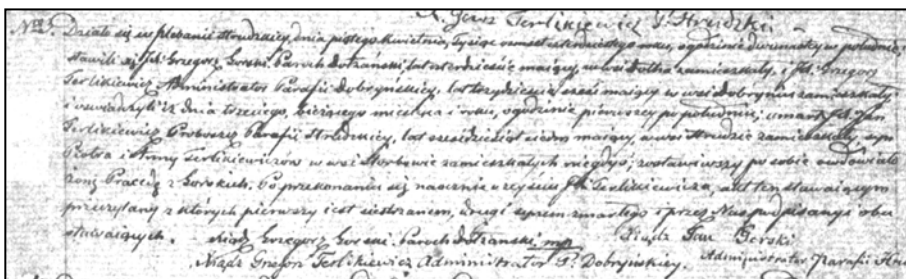 X. Jan Terlikiewicz P. Hrudzki
Działo się w plebanii Hrudzkiey, dnia piątego Kwietnia, tysiąc ośmset roku, ogodzinie dwunastey w południe,
stawili się Jd. Grzegorz Gorski, Paroch Dołżański, lat czterdzieście maiący, w wsi zamieszkały, i Jd. Grzegorz
Terlikiewicz Administrator Parafii Dobryńskiey, lat trzydzieście sześć maiący w wsi Dobryniu zamieszkały
i oświadczyli iż dnia trzeciego, bieżącego miesiąca i roku, ogodzinie pierwszey po południu, umarł Jd. Jan
Terlikiewicz Proboszcz Parafii Hrudzkiey, lat sześćdziesiąt siedm maiący, w wsi Hrudzie zamieszkały, syn
Piotra i Anny Terlikiewiczów w wsi zamieszkałych niegdyś, zostawiwszy po sobie owdowiałą
żonę z Gorskich. Po przekonaniu się naocznie o zeyściu Jd. Terlikiewicza, akt ten stawaiącym
przeczytany z których pierwszy iest siestrzanem, drugi synem zmarłego i przez Nas podpisany i obu
stawaiących. - Xiądz Grzegorz Gorski, Paroch Dołżański mp Xiądz Jan Gerski
Xiądz Gregor Terlikiewicz Administrator P. Dobryńskiey. Administrator Parafii